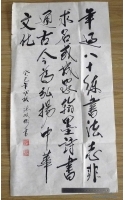 年过八十练书法志非
求名或成家翰墨诗书
通古今为弘扬中华
文化